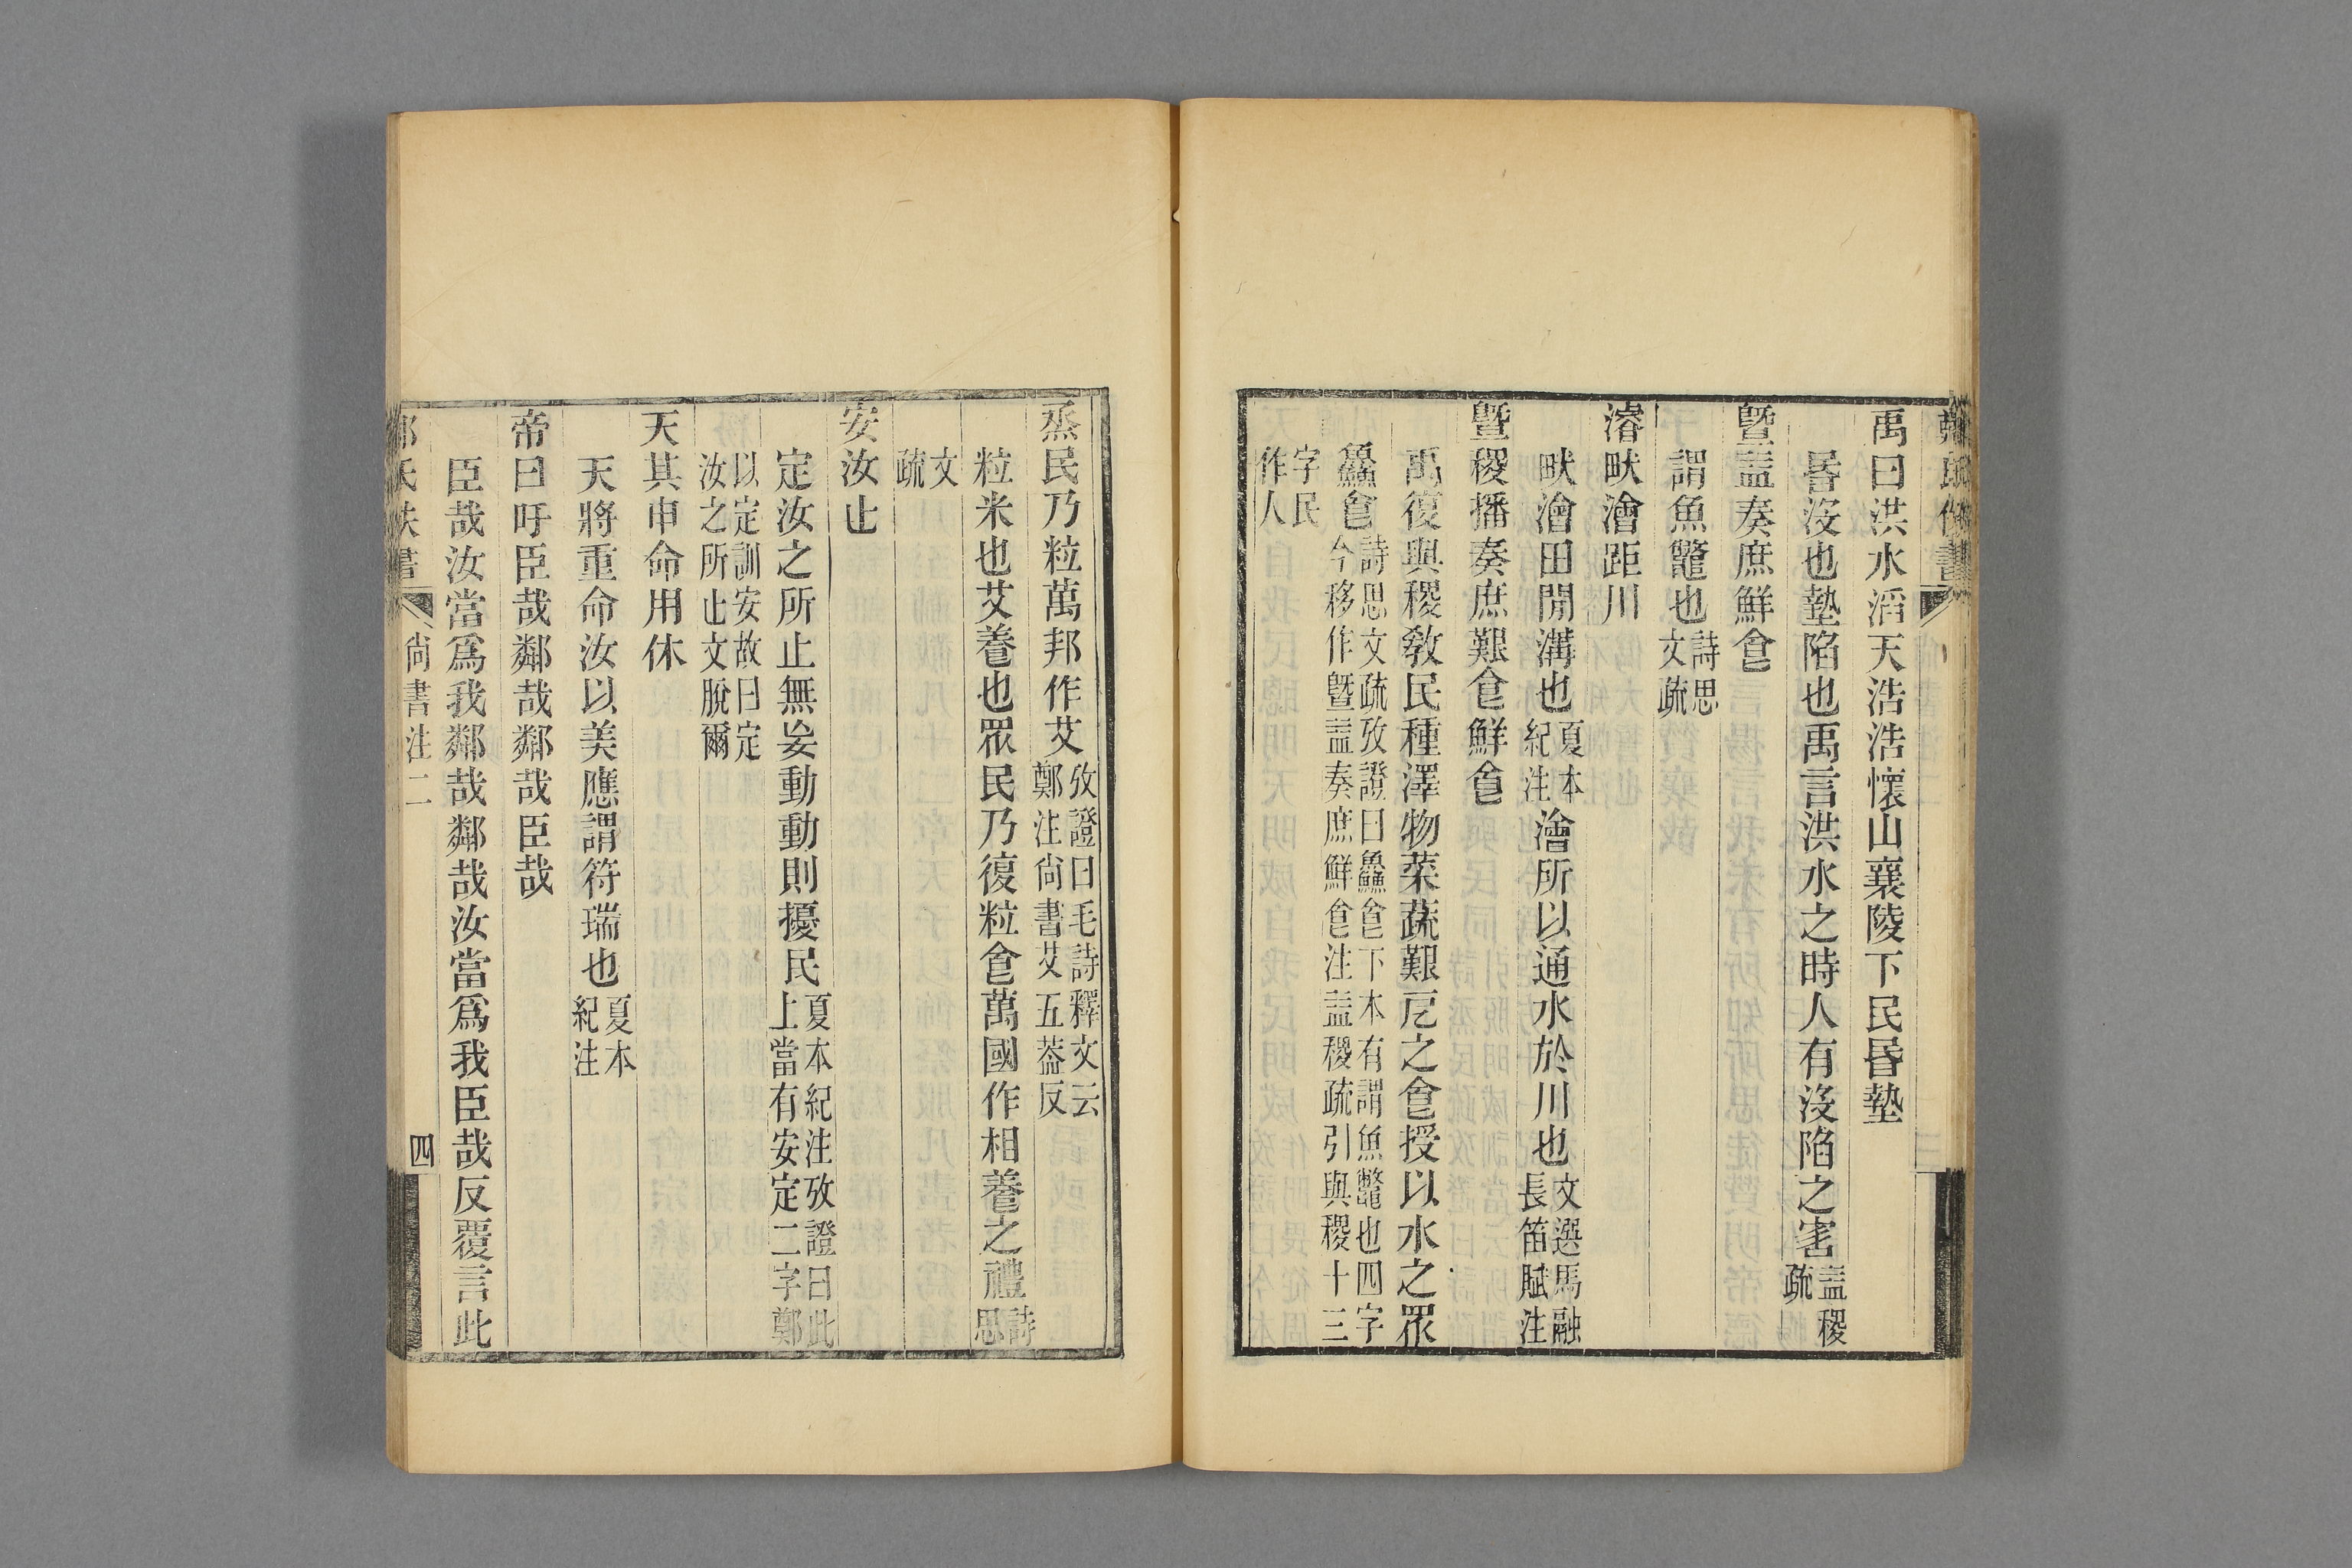 禹曰洪水滔天浩浩懷山襄陵下民昬墊
昬沒也墊陷也禹言洪水之時人有沒陷之害益稷疏
曁益奏庶鮮食
謂魚鼈也詩思文疏
濬畎澮距川
畎澮田閒溝也夏本紀注澮所以通水於川也文選馬融長笛賦注
曁稷播奏庶艱食鮮食
禹復與稷敎民種澤物菜蔬艱戹之食授以水之眾
鱻食詩思文疏攷證曰鱻食下本有謂魚鼈也四字今移作曁益奏庶鮮食注益稷疏引與稷十三
字民作人
烝民乃粒萬邦作艾攷證曰毛詩釋文云鄭注尙書艾五葢反
粒米也艾養也眾民乃復粒食萬國作相養之禮詩思
文疏
安汝止
定汝之所止無妄動動則擾民夏本紀注攷證曰此上當有安定二字鄭
以定訓安故曰定汝之所止文脫爾
天其申命用休
天將重命汝以美應謂符瑞也夏本紀注
帝曰吁臣哉鄰哉鄰哉臣哉
臣哉汝當爲我鄰哉鄰哉汝當爲我臣哉反覆言此
氏佚書 尙書注二 四